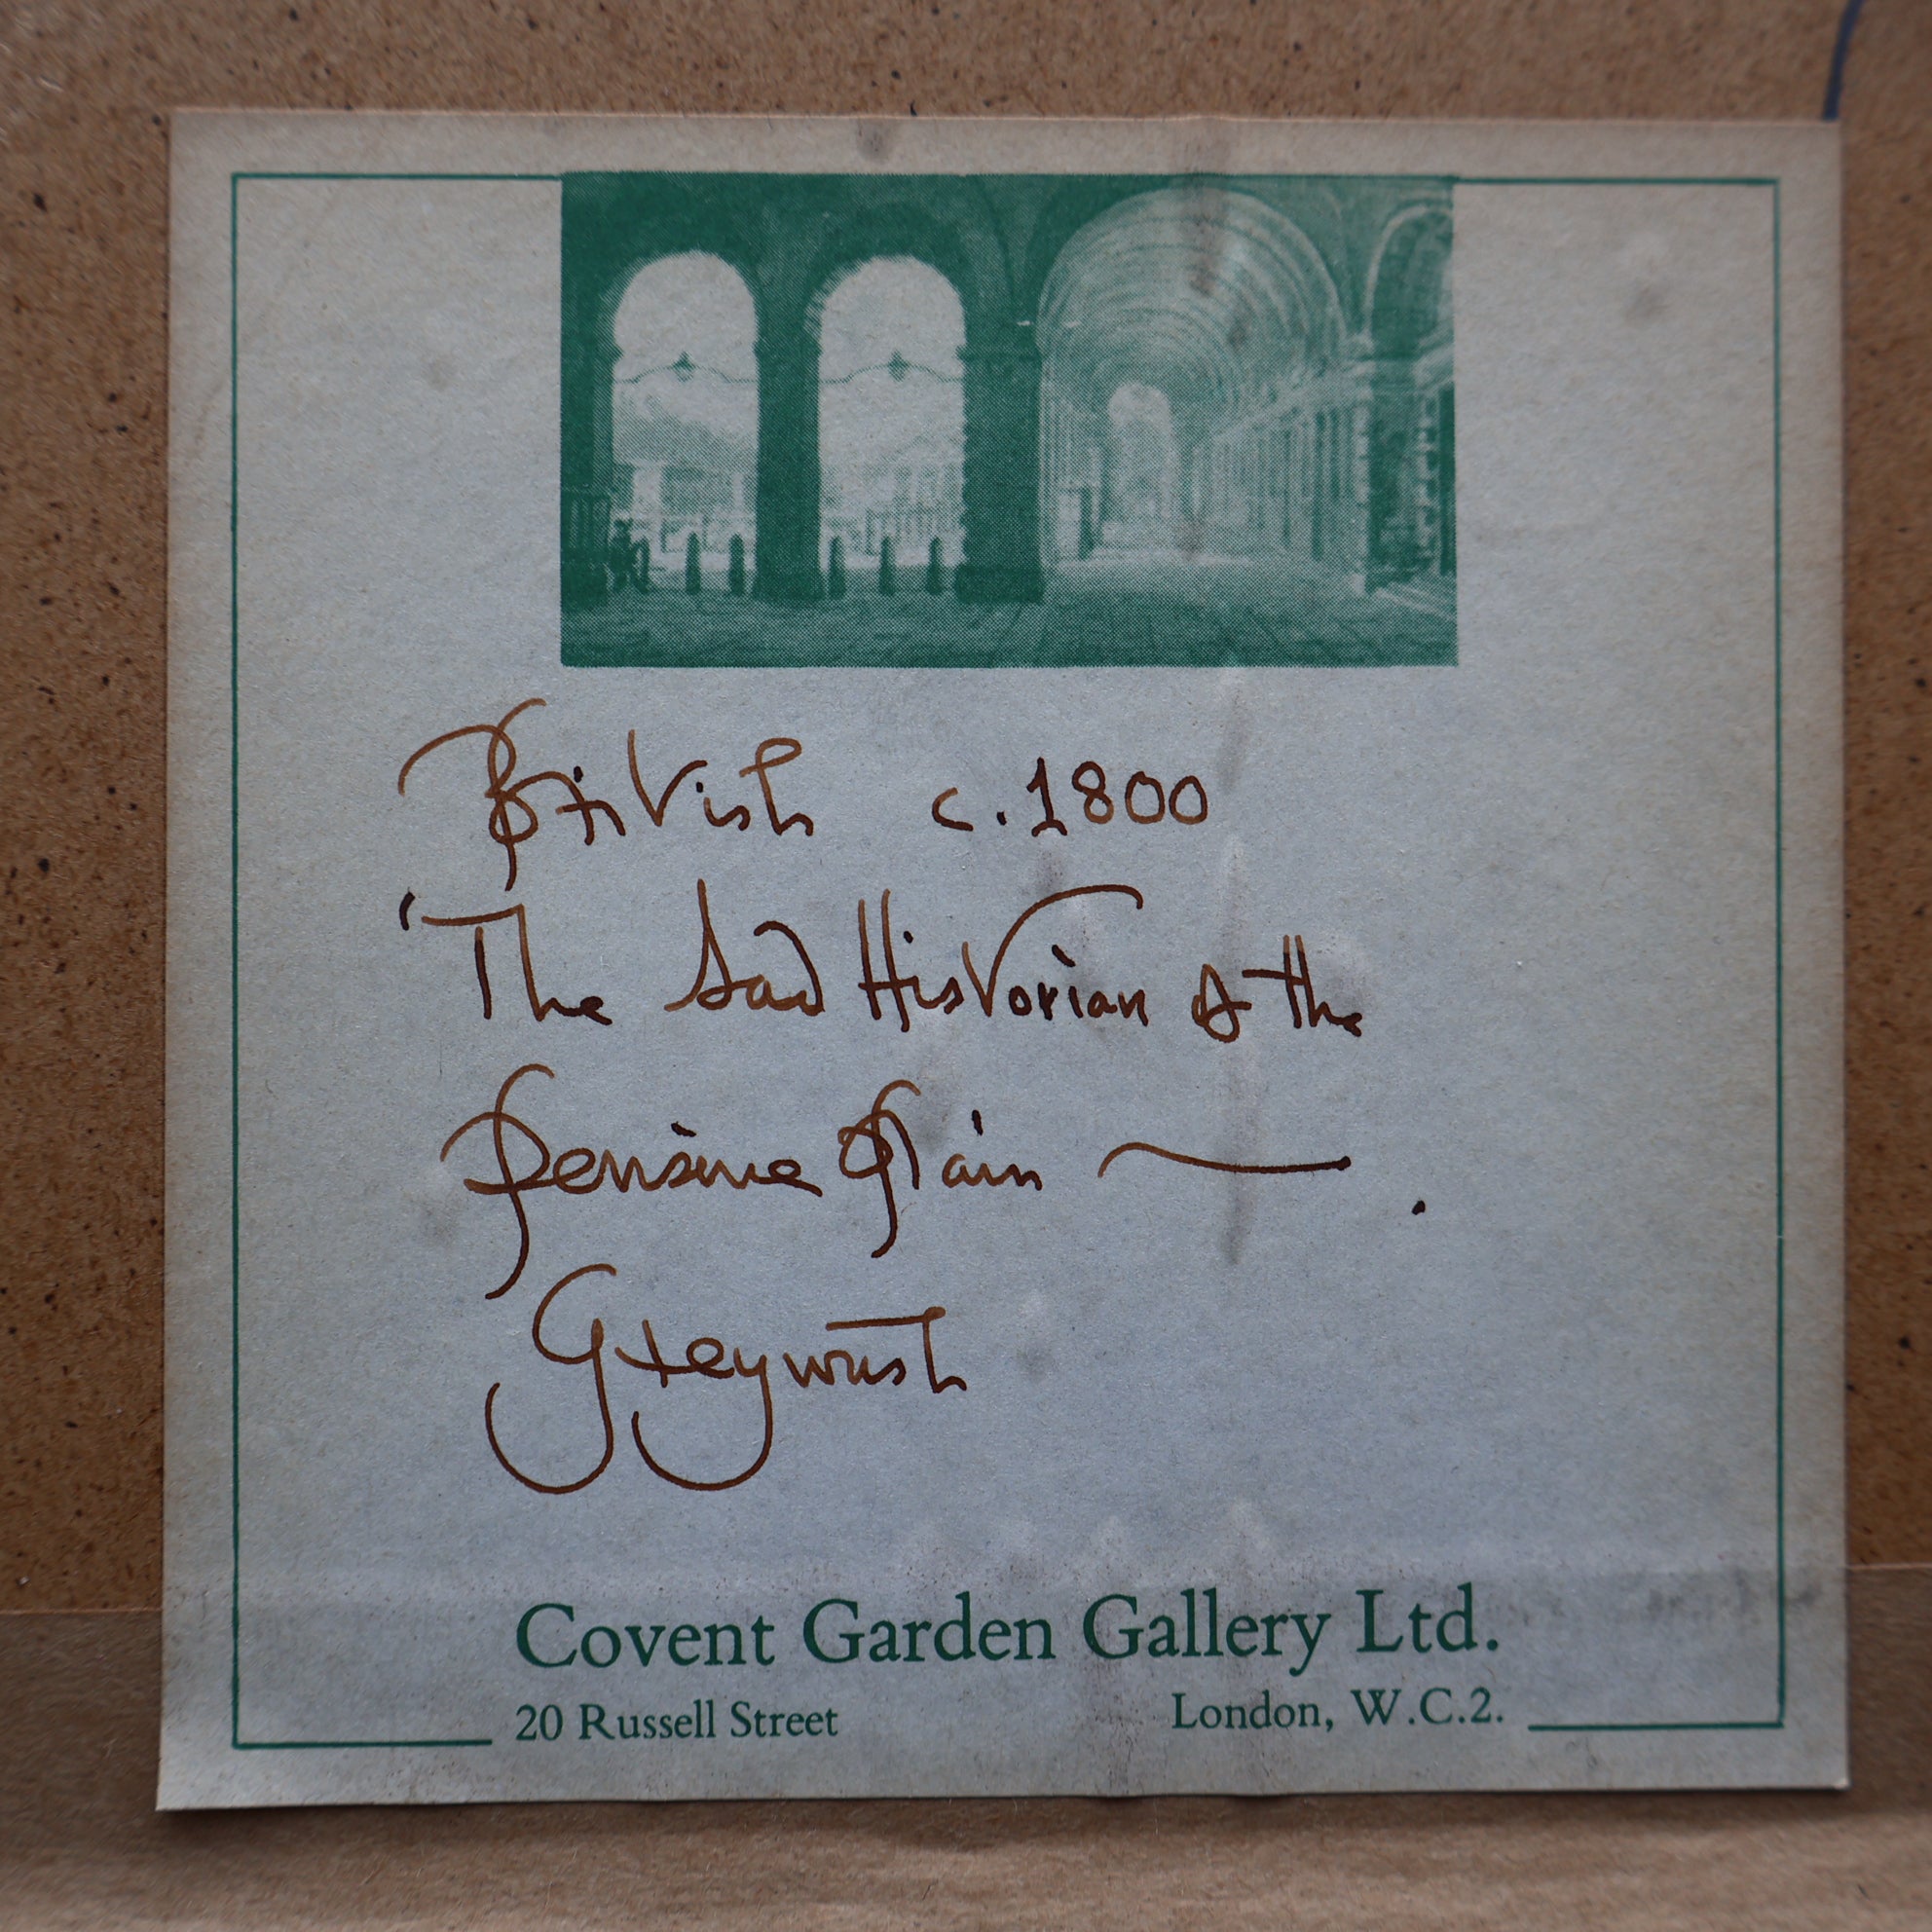 British c.1800
'The Sad Historian of the
Pensive Plain —.
Greywash
Covent Garden Gallery Ltd.
20 Russell Street London, W.C.2.